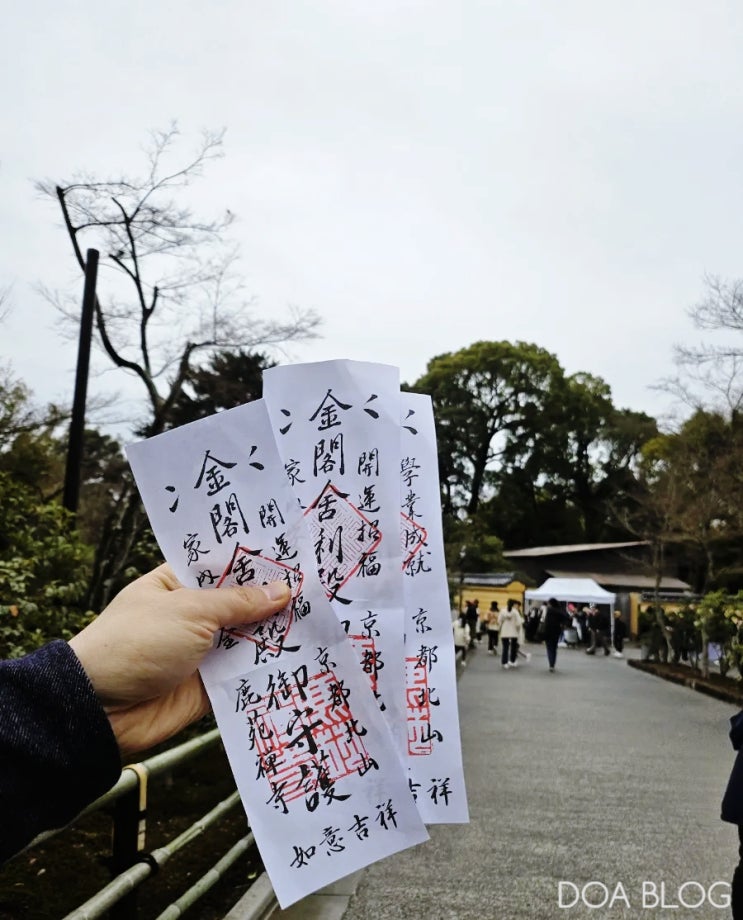 開運招福
京都北山
金閣舎
殿御守護
家内
全
鹿苑禅寺
如意吉祥
開運招福
京
金閣舎利殿
家
學業成就
京都北山
祥
DOA BLOG